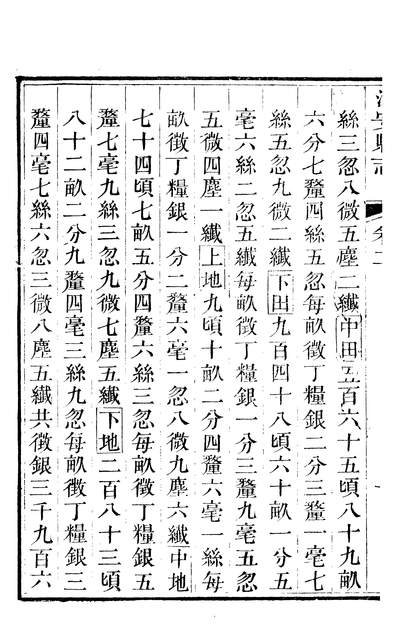 縣志 卷二
絲三忽八微五塵二纖中田五百六十五頃八十九畝
六分七釐四絲五忽每畝徵丁糧銀二分三釐一毫七
絲五忽九微二纖下田九百四十八頃六十畝一分五
毫六絲二忽五纖每畝徵丁糧銀一分三釐九毫五忽
五微四塵一纖上地九頃十畝二分四釐六毫一絲每
畝徵丁糧銀一分二釐六毫一忽八微九塵六纖中地
七十四頃七畝五分四釐六絲三忽每畝徵丁糧銀五
釐七毫九絲三忽九微七塵五纖下地二百八十三頃
八十二畝二分九釐四毫三絲九忽每畝徵丁糧銀三
釐四毫七絲六忽三微八塵五纖共徵銀三千九百六